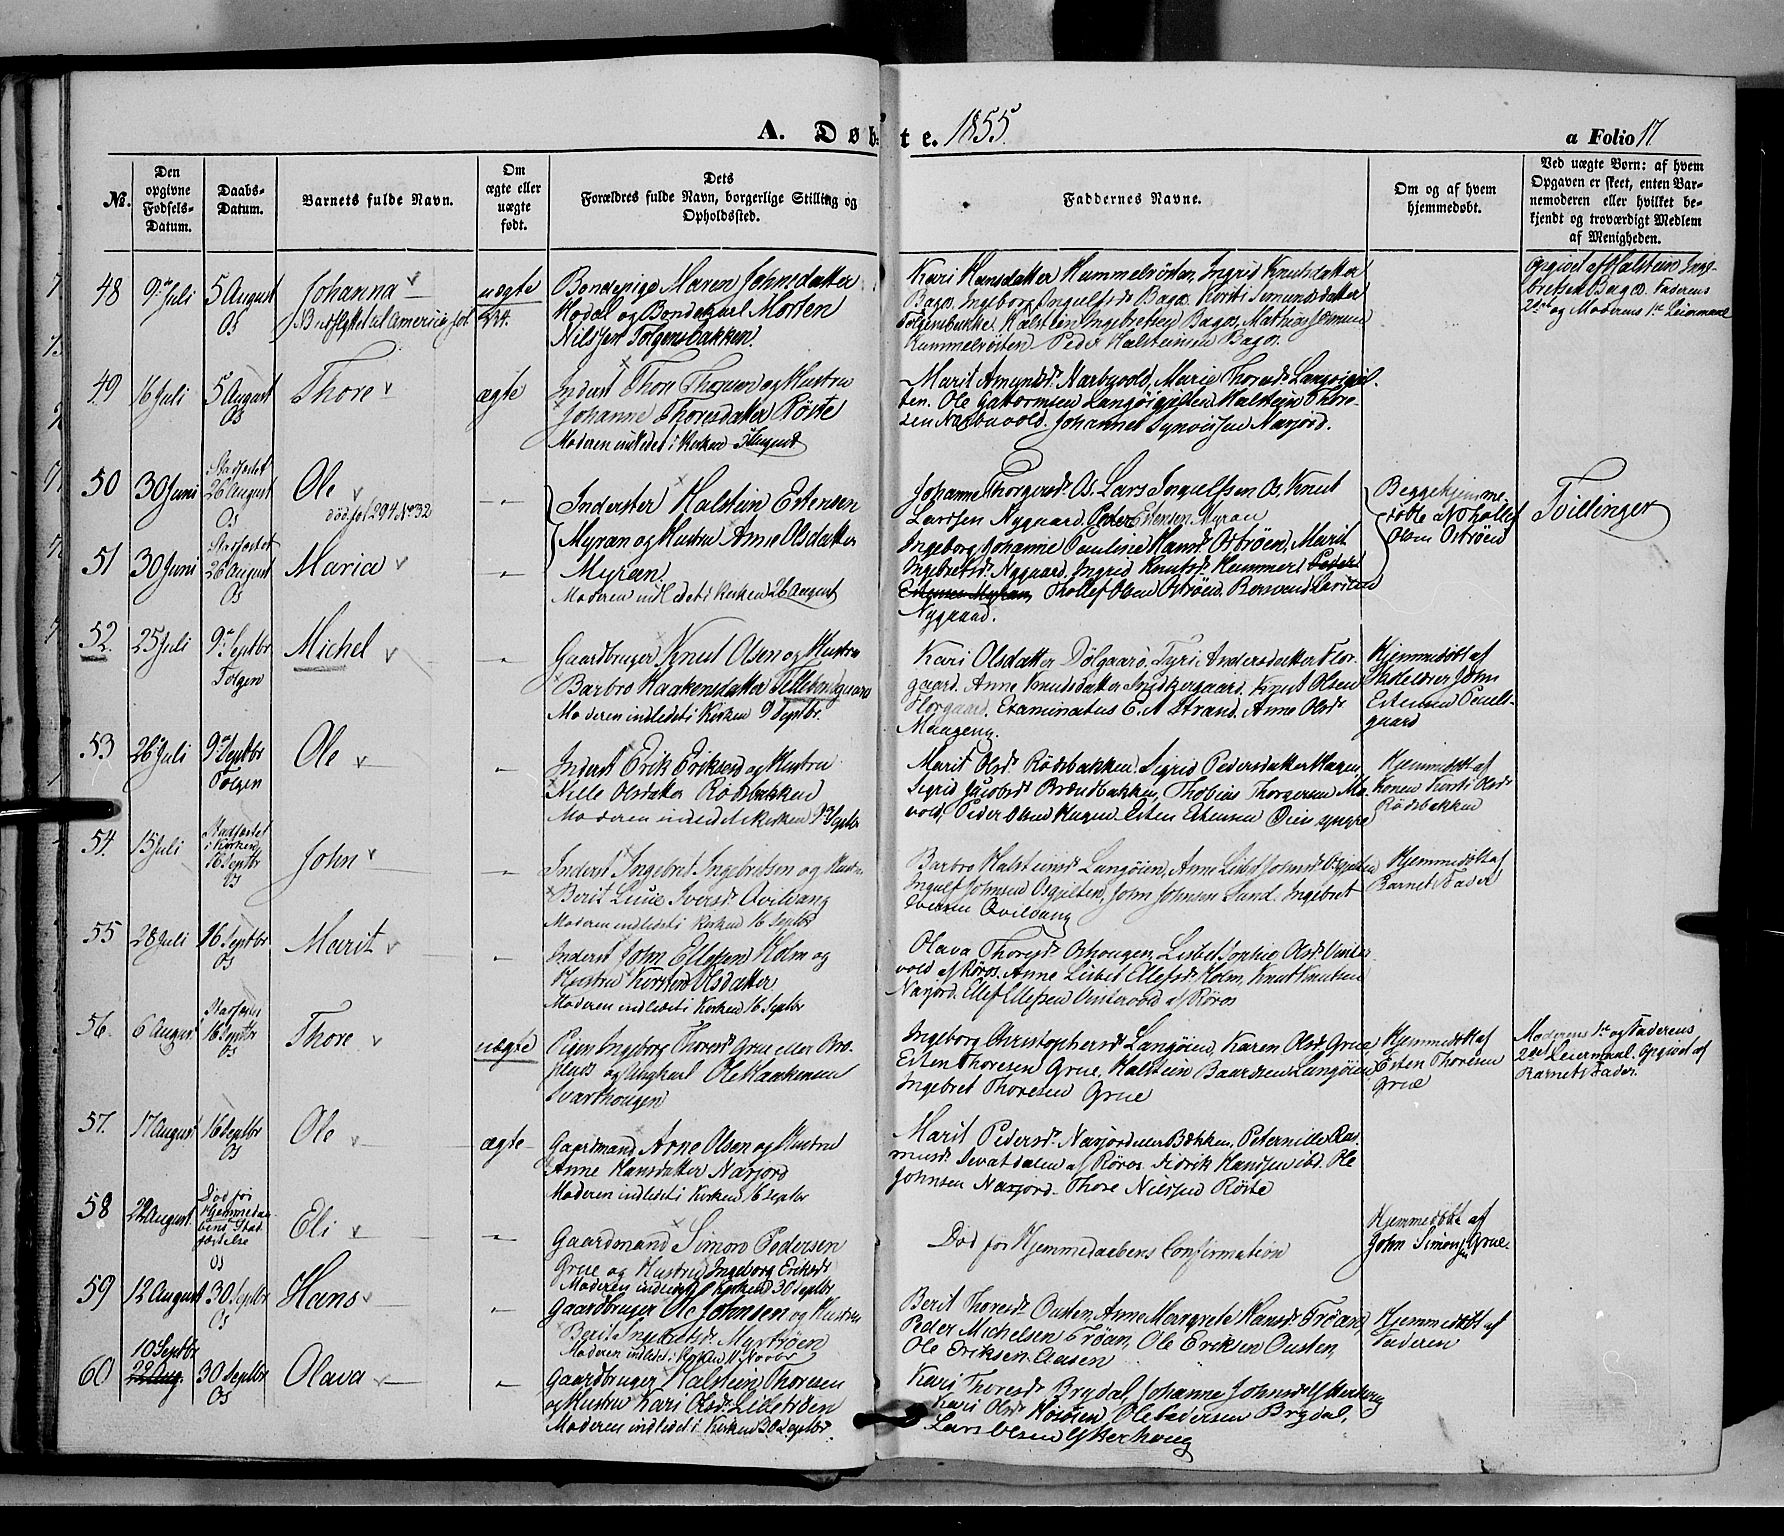 A. Døbte. 1855.
a Folio 17
No.
Den opgivne Fødsels-Datum.
Daabs-Datum.
Barnets fulde Navn.
Om ægte eller uægte født.
Dets Forældres fulde Navn, borgerlige Stilling og Opholdssted.
Faddernes Navne.
Om og af hvem hjemmedøbt.
Ved uægte Børn: af hvem Opgaven er skeet, enten Barnemoderen eller hvilket bekjendt og troværdigt Medlem af Menigheden.
48 9de Juli 5 August Os Johanna uægte
Bondepige Maren Johnsdatter
Hodal og Bondekarl Morten
Nilssen Tolgensbakken.
Kari Hansdatter Hummelvolden, Ingrid Knutsdatter
Bagø, Ingeborg Ingulfsd. Bagø. Kirsti Simensdatter
Tolgensbakke. Halstein Ingebretsen Bagø, Mathias
Peder Halsteinsen Bagø.
Opgivet af Halstein Inge-
bretsen Bagø. Faderens
2det og Moderens 1ste Leiermaal
49 16 Juli 5 August Os Thore ægte
Inderst Thore Thoresen og Hustru
Johanne Thoresdatter Röste
Moderen indledet i Kirken 5 August
Marit Amundsd. Narbuvold, Marie Thoresd. Langøigjel-
ten. Ole Guttormsen Langøigjelten Halstein Thore-
sen Narbuvold. Johannes Narjord.
50 30 Juni Stadfæstet 26 August Os Ole
död fol 294 No 32
Inderster Halstein Estensen
Myran og Hustru Anne Olsdatter
Myran
Moderen indledet i Kirken 26 August
Johanne Thorgersd. Os. Lars Ingulfsen Os. Knut
Larssen Nygaard. Peder Estensen Myran
Begge hjemme-
døbte af Thollef
Olsen Oströen
Tvillinger
51 30 Juni Stadfæstet 26 August Os Maria
Ingeborg Johanne Pauline Hansd. Oströen, Marit
Ingebretsd. Nygaard, Ingrid Knutsd. Hummel Peder
Estensen Myran, Thollef Olsen Oströen, Larssen
Nygaard.
52. 25 Juli 9de Septbr Tolgen Michel
Gaardbruger Knut Olsen og Hustru
Barbro Haakensdatter
Moderen indledet i Kirken 9 Septbr.
Kari Olsdatter Dølgaard. Tyri Andersdatter Flor-
gaard. Anne Knutsdatter. Knut Olsen
Florgaard. Examinatus E. A. Strand. Anne Olsd.
Maageng.
Hjemmedøbt af
Skolelærer John
Estensen
gaard
53 26 Juli 9de Septbr Tolgen Ole
Inderst Erik Eriksen og Hustru
Nille Olsdatter Rødsbakken
Moderen indledet i Kirken 9 Septbr
Marit Olsd. Rødsbakken. Sigrid Pedersdatter Hagen,
Sigrid Jacobsd. Brændbakken, Thobias Thorgersen Mo-
vold, Peder Olsen Hagen. Esten Estensen
Hjemmedøbt af
Konen Kirsti Olsd.
Rødsbakken
54. 15 Juli Stadfæstet i Kirken 16 Septbr Os John
Inderst Ingebret Ingebretsen og Hustru
Berit Lucie Iversd. Qvilvang
Moderen indledet i Kirken 16 Septbr
Barbro Halsteinsd. Langøien, Anne Lisbet Johnsd. Osgjelten
Ingulf Johnsen Osgjelten, John Johnsen Sund, Ingebret
Iversen Qvilvang
Hjemmedøbt af
Barnets Fader
55 28 Juli 16 Septbr Os Marit
Inderst John Ellefsen Holm og
Hustru Kirsten Olsdatter
Moderen indledet i Kirken 16 Septbr
Olava Thoresd. Oshougen, Lisbet Sophie Olsd. Vinter-
vold af Röros. Anne Lisbet Ellefsd. Holm, Knut Knutsen
Narjord. Ellef Ellefsen Vintervold af Röros
56. 6 August 16 Septbr Os Thore uægte
Pigen Ingeborg Thoresd. Grue eller
og Ungkarl Ole Haakensen
Svarthougen
Ingeborg Christophersd. Langøien, Karen Olsd. Grue,
Esten Thoresen Grue, Halstein Baardsen Langøien,
Ingebret Thoresen Grue
Hjemmedøbt af
Esten Thoresen
Grue
Moderens 1ste og Faderens
2det Leiermaal. Opgivet af
Barnets Fader.
57. 17 August 16 Septbr Os Ole ægte
Gaardmand Arne Olsen og Hustru
Anne Hansdatter Narjord
Moderen indledet i Kirken 16 Septbr
Marit Pedersd. Narjord, Peternille Ras-
musd. af Röros. Fidrik Hansen ibd. Ole
Johnsen Narjord. Thore Nilssen Röste
58 22 August Död før Hjemmedaabens Stadfæstelse Os Eli
Gaardmand Simon Pedersen
Grue og Hustru Ingeborg Eriksd.
Moderen indledet i Kirken 30 Septbr
Død før Hjemmedaabens Confirmation
Hjemmedøbt af
John Simonsen Grue.
59 12 August 30 Septbr Os Hans
Gaardbruger Ole Johnsen og Hustru
Berit Ingebretsd. Myrtröen
Moderen indledet i Kirken 11 Novbr
Berit Thoresd. Ousten, Anne Margrete Hansd. Tröan,
Peder Michelsen Tröan, Ole Eriksen Ousten,
Ole Eriksen Aasen
Hjemmedøbt af
Faderen
60 10 Septbr 22 Aug. 30 Septbr Os Olava
Gaardbruger Halstein Thoresen
og Hustru Kari Olsd. Lilleströen
Moderen indledet i Kirken 30 Septbr.
Kari Thoresd. Brydal, Johanne Johnsd. Ytterhoug
Kari Olsd. Ole Pedersen Brydal,
Lars Olsen Ytterhoug